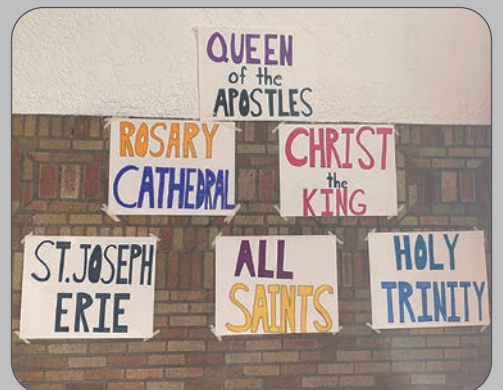 QUEEN
of the
APOSTLES
ROSARY
CATHEDRAL
CHRIST
the
KING
ST. JOSEPH
ERIE
ALL
SAINTS
HOLY
TRINITY